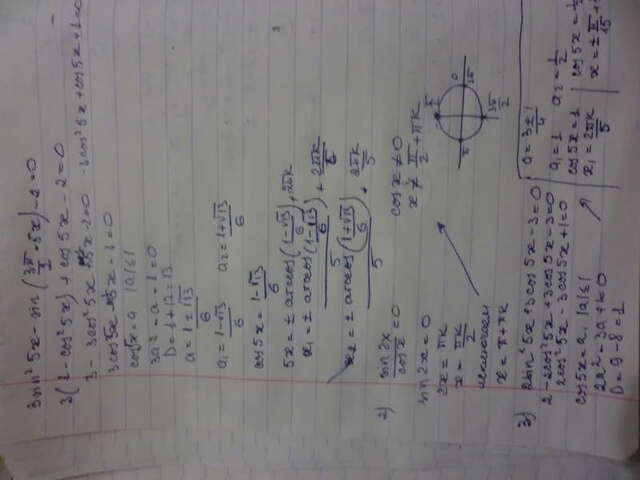 3sin²5x - sin(3π/2 - 5x) - 2 = 0
3(1 - cos²5x) + cos5x - 2 = 0
3 - 3cos²5x 2 = 0 -3cos²5x + cos5x + 1 = 0
3cos²5x - cos5x - 1 = 0
cos5x = a |a| ≤ 1
3a² - a - 1 = 0
D = 1 + 12 = 13
a = 1 ± √13 / 6
a₁ = 1 - √13 / 6 a₂ = 1 + √13 / 6
cos5x = 1 - √13 / 6
5x = ± arccos(1 - √13 / 6) + 2πk
x₁ = ± arccos(1 - √13 / 6) / 5 + 2πk / 5
x₂ = ± arccos(1 + √13 / 6) / 5 + 2πk / 5
2) sin2x / cosx = 0 cosx ≠ 0
sin2x = 0 x ≠ π/2 + πk
2x = πk
x = πk / 2
исключаем
x = π + πk
π/2 π 0 2π 3π/2
3) 2sin²5x + 3cos5x - 3 = 0
2 - 2cos²5x + 3cos5x - 3 = 0
2cos²5x - 3cos5x + 1 = 0
cos5x = a, |a| ≤ 1
2a² - 3a + 1 = 0
D = 9 - 8 = 1
a = 3 ± 1 / 4
a₁ = 1 a₂ = 1/2
cos5x = 1 cos5x = 1/2
x₁ = 2πk / 5 x = ± π/15 +